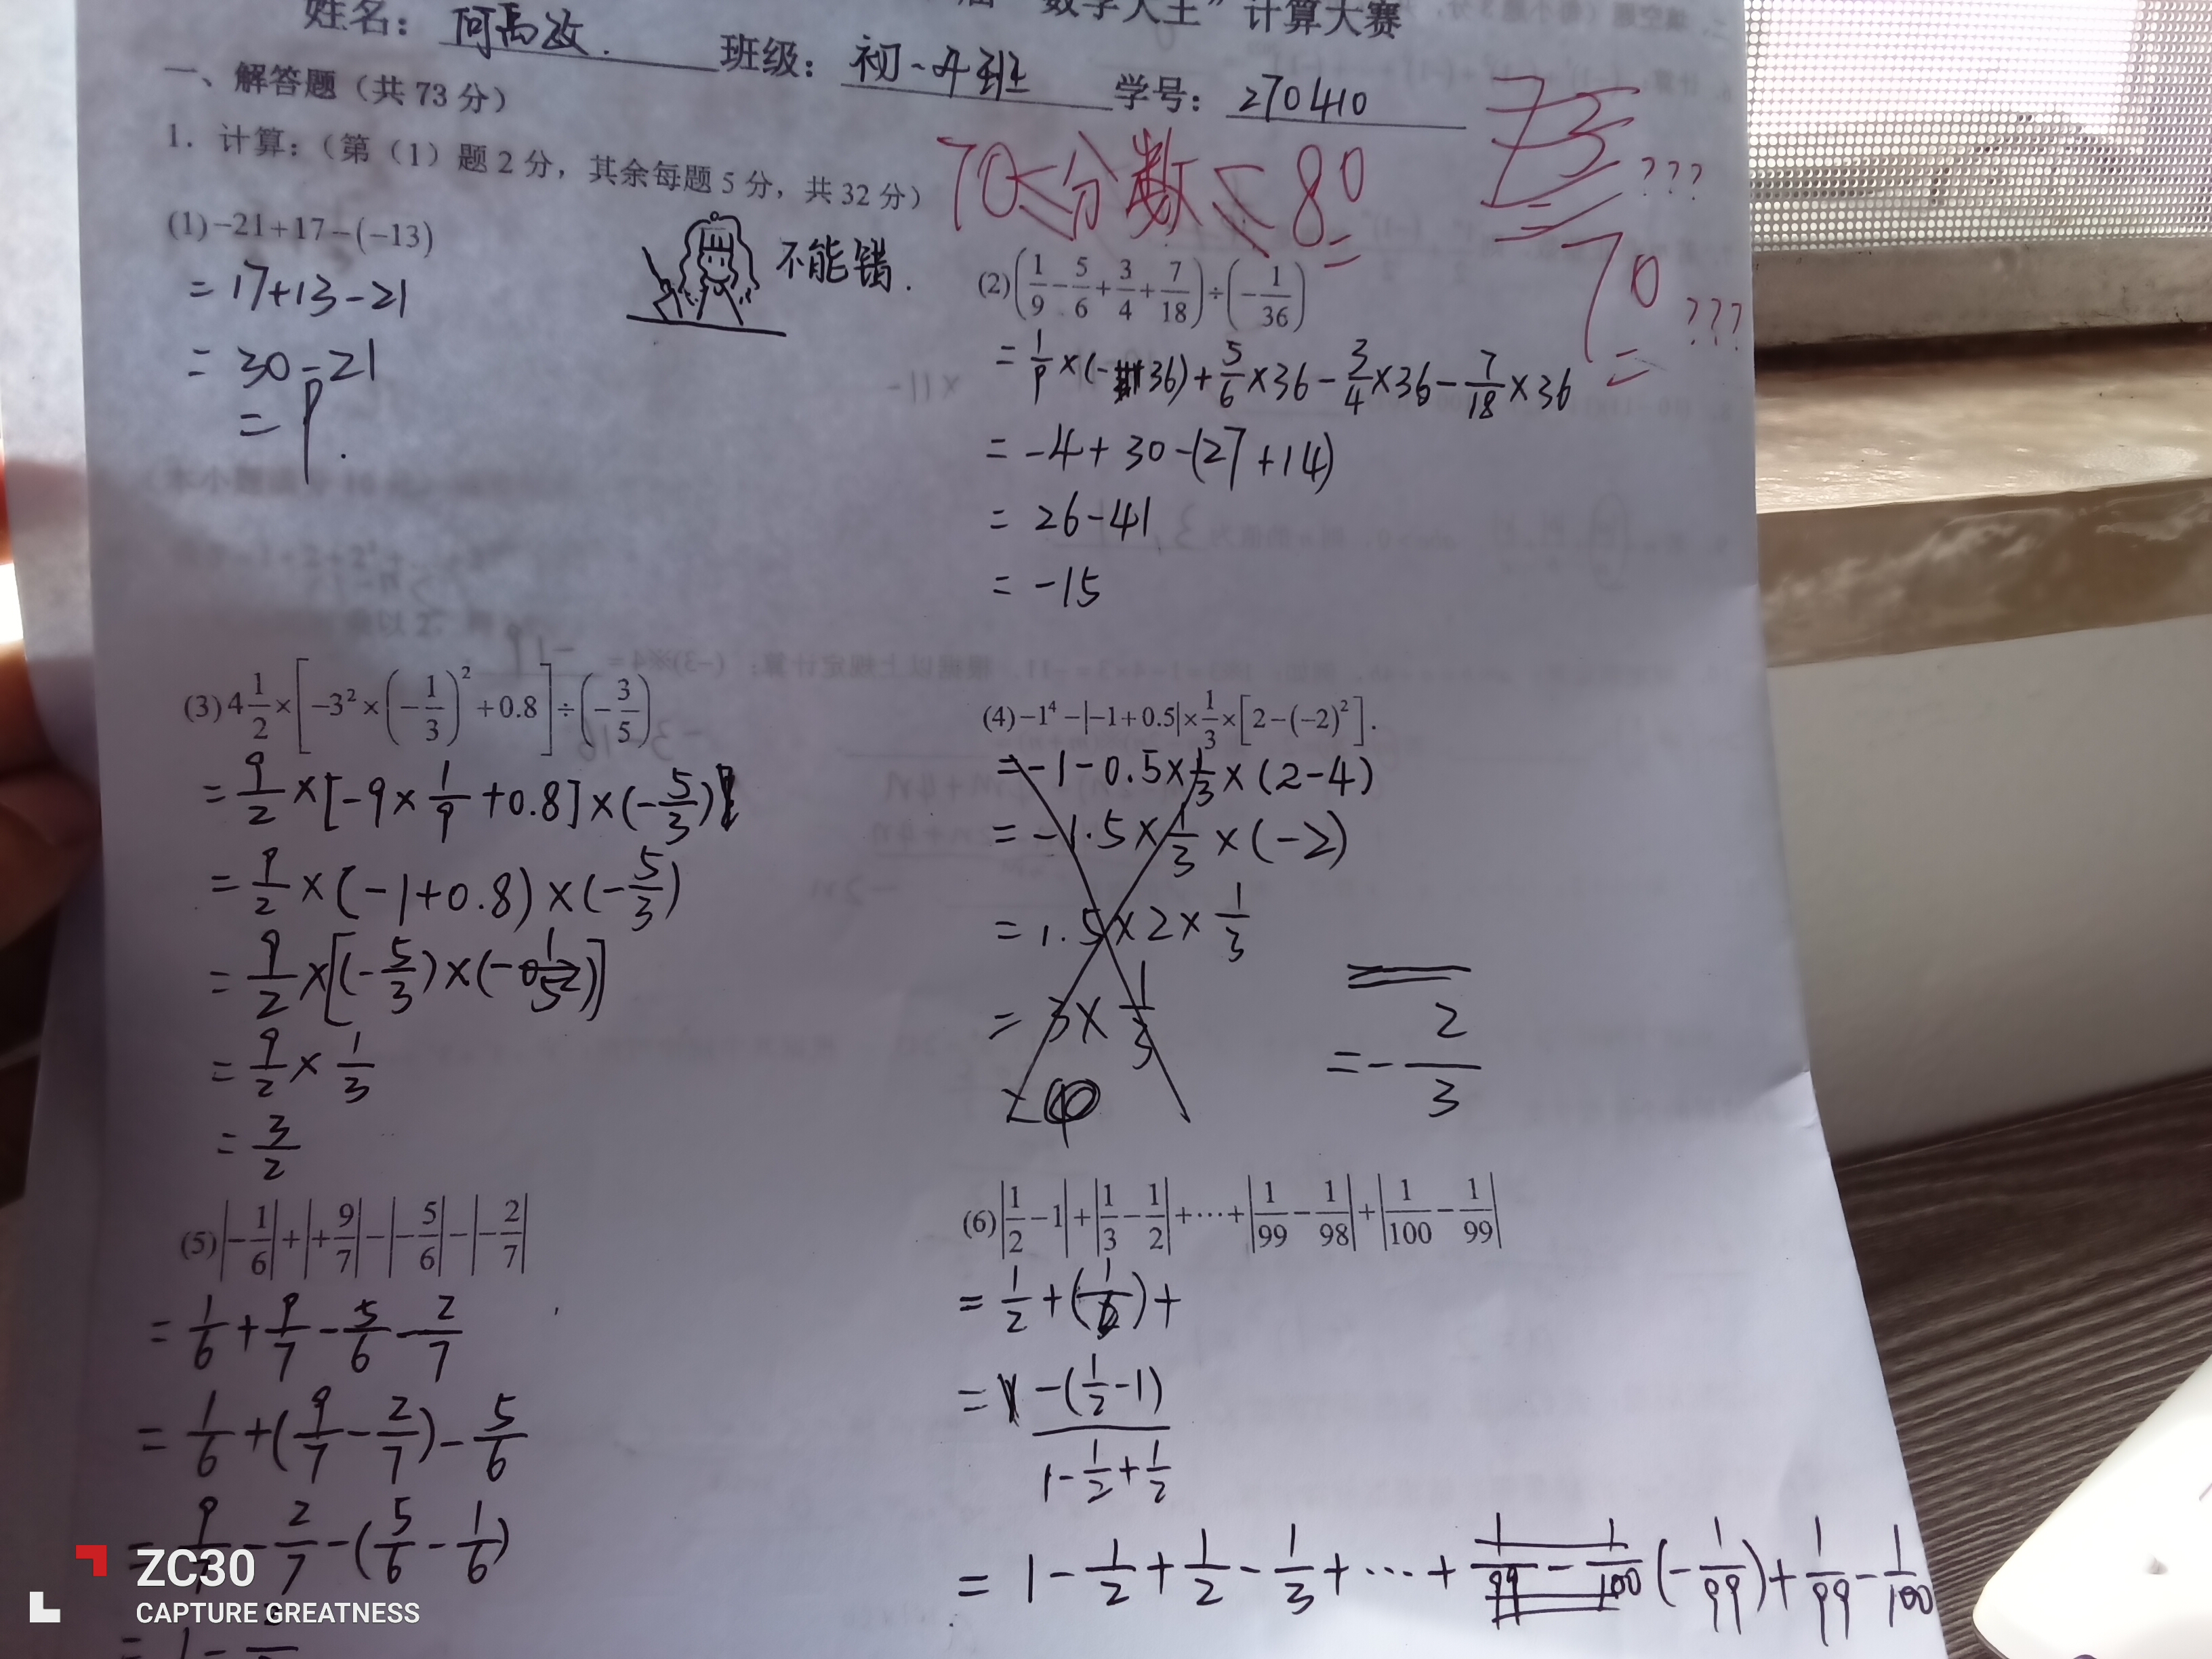 “数学大王”计算大赛
姓名： 班级：初一4班 学号：270410
一、解答题（共73分）
1. 计算：（第（1）题2分，其余每题5分，共32分）
70≤分数≤80
73???
70???
(1) -21+17-(-13)
= 17+13-21
= 30-21
= 9.
不能错.
(2) (1/9 - 5/6 + 3/4 + 7/18) ÷ (-1/36)
= 1/9 ×(-36)+ 5/6 ×36 - 3/4 ×36 - 7/18 ×36
= -4+30-(27+14)
= 26-41
= -15
(3) 4 1/2 × [-3² × (-1/3)² + 0.8] ÷ (-3/5)
= 9/2 × [-9× 1/9 +0.8] × (-5/3)
= 9/2 × (-1+0.8) × (-5/3)
= 9/2 × [(-5/3) × (-1/5)]
= 9/2 × 1/3
= 3/2
(4) -1⁴ - |-1+0.5| × 1/3 × [2-(-2)²].
= -1-0.5× 1/3 ×(2-4)
= -1.5× 1/3 ×(-2)
= 1.5×2× 1/3
= 3× 1/3
= - 2/3
(5) |-1/6| + |+9/7| - |-5/6| - |-2/7|
= 1/6 + 9/7 - 5/6 - 2/7
= 1/6 + (9/7 - 2/7) - 5/6
= 9/7 - 2/7 - (5/6 - 1/6)
= 1 -
(6) |1/2 - 1| + |1/3 - 1/2| + ⋯ + |1/99 - 1/98| + |1/100 - 1/99|
= 1/2 + ( ) +
= -(1/2 -1)
1- 1/2 + 1/2
= 1 - 1/2 + 1/2 - 1/3 + ⋯ + 1/99 - 1/100 (- 1/99) + 1/99 - 1/100
ZC30
CAPTURE GREATNESS